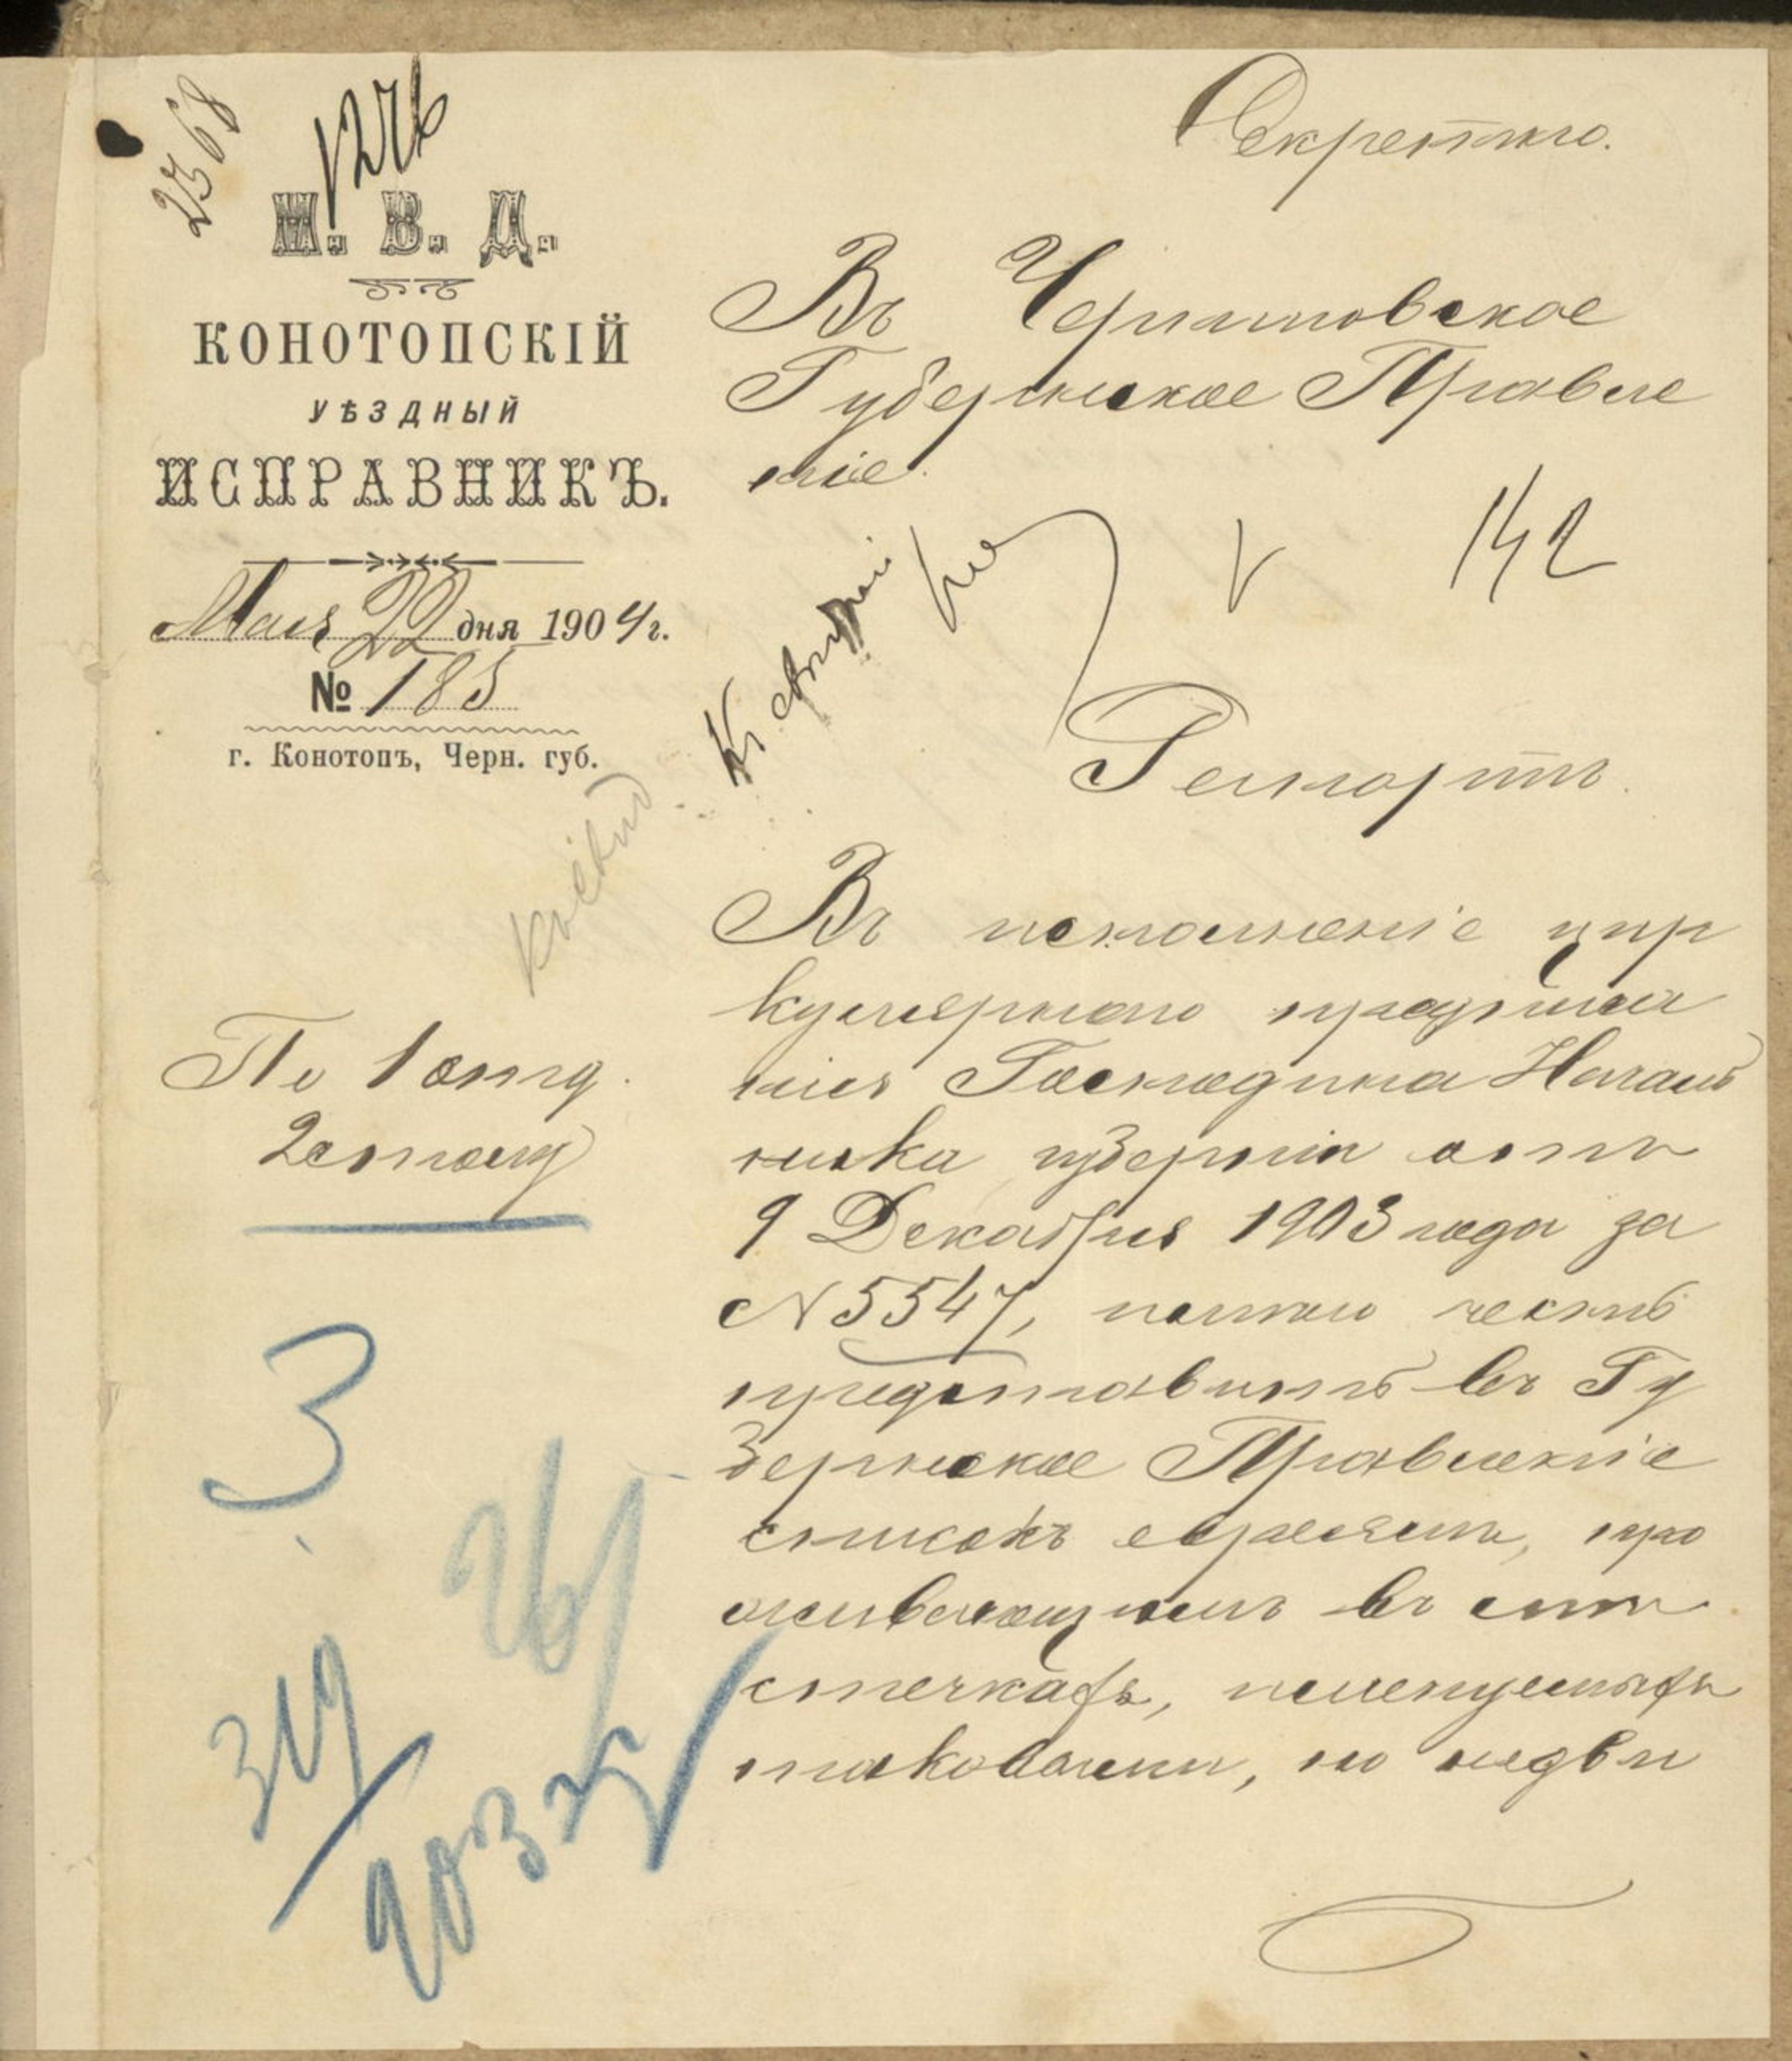 2568
1276
М. В. Д.
КОНОТОПСКІЙ
УѢЗДНЫЙ
ИСПРАВНИКЪ.
Мая 22 дня 1904 г.
№ 185
г. Конотопъ, Черн. губ.
По 1 отд.
2 столу
3
Секретно.
Въ Черниговское
Губернское Правле
ніе.
142
Рапортъ.
Въ исполненіе цир
кулярнаго предписа
нія Господина Началь
ника губерніи отъ
9 Декабря 1903 года за
N 5547, имѣю честь
представить въ Гу
бернское Правленіе
списокъ евреямъ, про
живающимъ въ мѣ
стечкахъ, именуемыхъ
таковыми, но недѣй